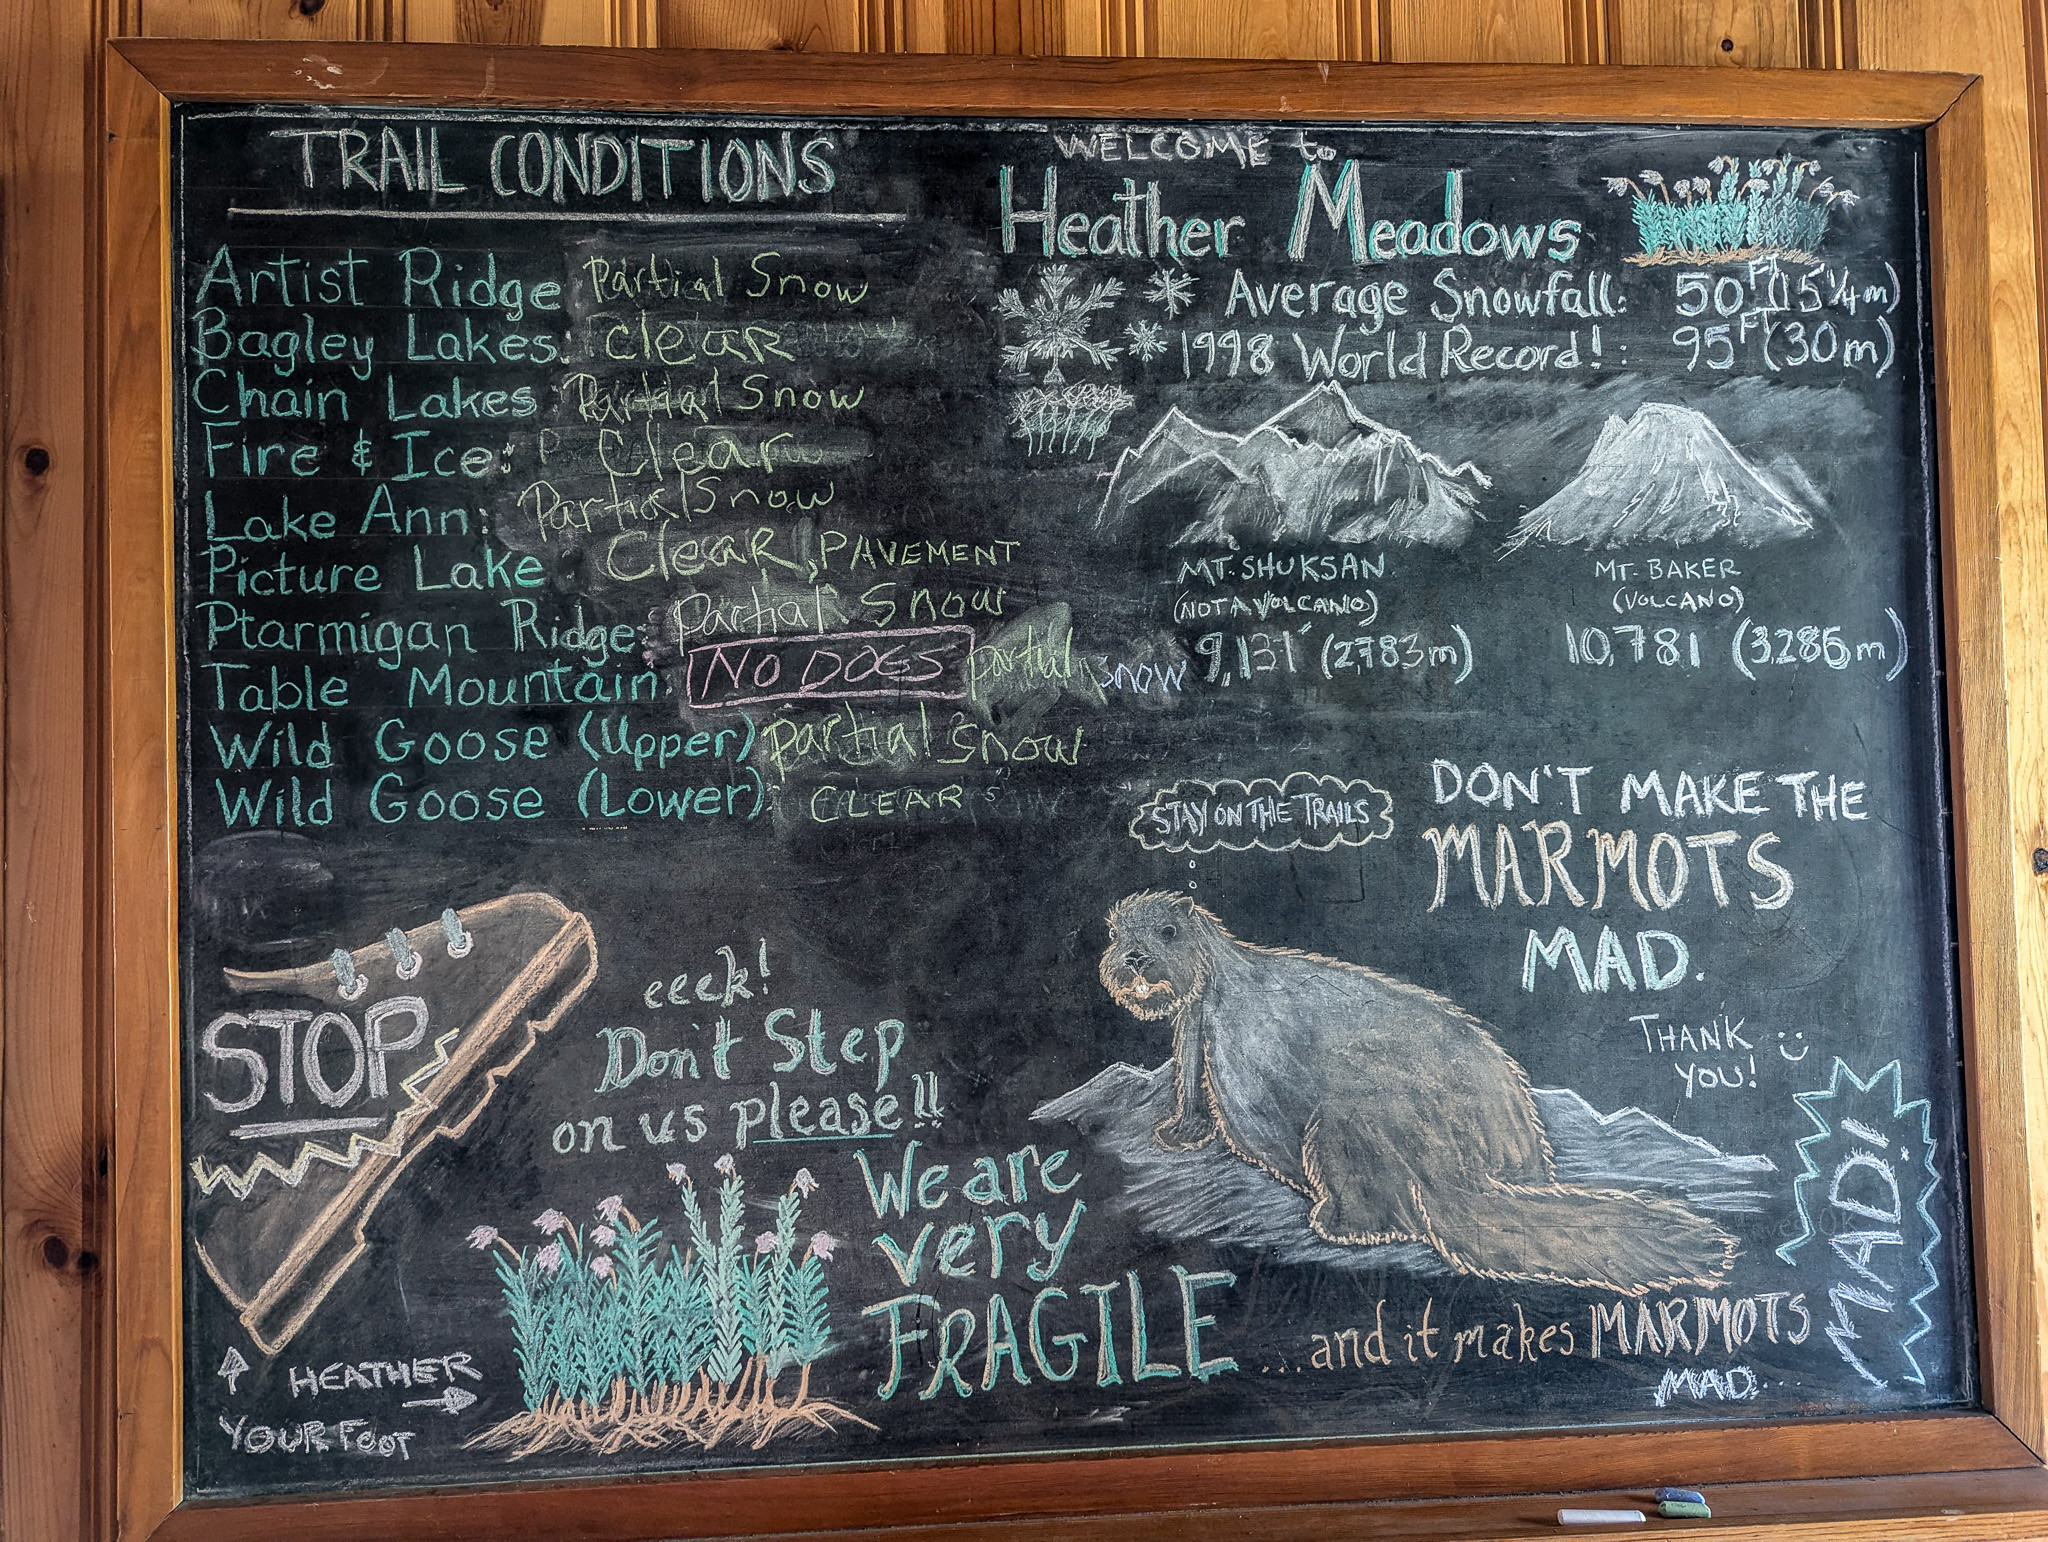 TRAIL CONDITIONS
Artist Ridge: Partial Snow
Bagley Lakes: clear
Chain Lakes: Partial Snow
Fire & Ice: Clear
Lake Ann: Partial Snow
Picture Lake: Clear, PAVEMENT
Ptarmigan Ridge: partial Snow
Table Mountain: NO DOGS partial snow
Wild Goose (Upper) partial snow
Wild Goose (Lower): CLEAR
WELCOME to
Heather Meadows
Average Snowfall: 50 FT (15 1/4 m)
1998 World Record!: 95 FT (30m)
MT. SHUKSAN
(NOT A VOLCANO)
9,131' (2783m)
MT. BAKER
(VOLCANO)
10,781 (3,286m)
STAY ON THE TRAILS
DON'T MAKE THE
MARMOTS
MAD.
THANK
YOU!
MAD!
STOP
eeek!
Don't Step
on us please!!
We are
very
FRAGILE
...and it makes MARMOTS
MAD...
HEATHER
YOUR FOOT